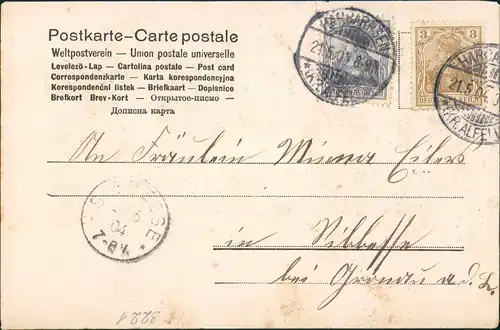 Postkarte-Carte postale
Weltpostverein — Union postale universelle
Levelező-Lap — Cartolina postale — Post card
Correspondenzkarte — Karta korespondencyjna
Korespondenční lístek — Briefkaart — Dopisnice
Brefkort Brev-Kort — Открытое-письмо —
Дописна карта
21.5.04 8-9
(KR. ALFE
3
DEUTSCHES REICH
HARB
21.5.04
(KR. ALFEL
An Fräulein Minna Eilers
7-8V.
04
in Sibbesse
bei Gronau a.d.L.
3221